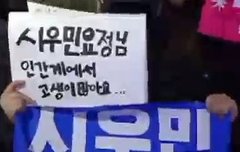 시우민요정님
인간계에서
고생이많아요...
시우민